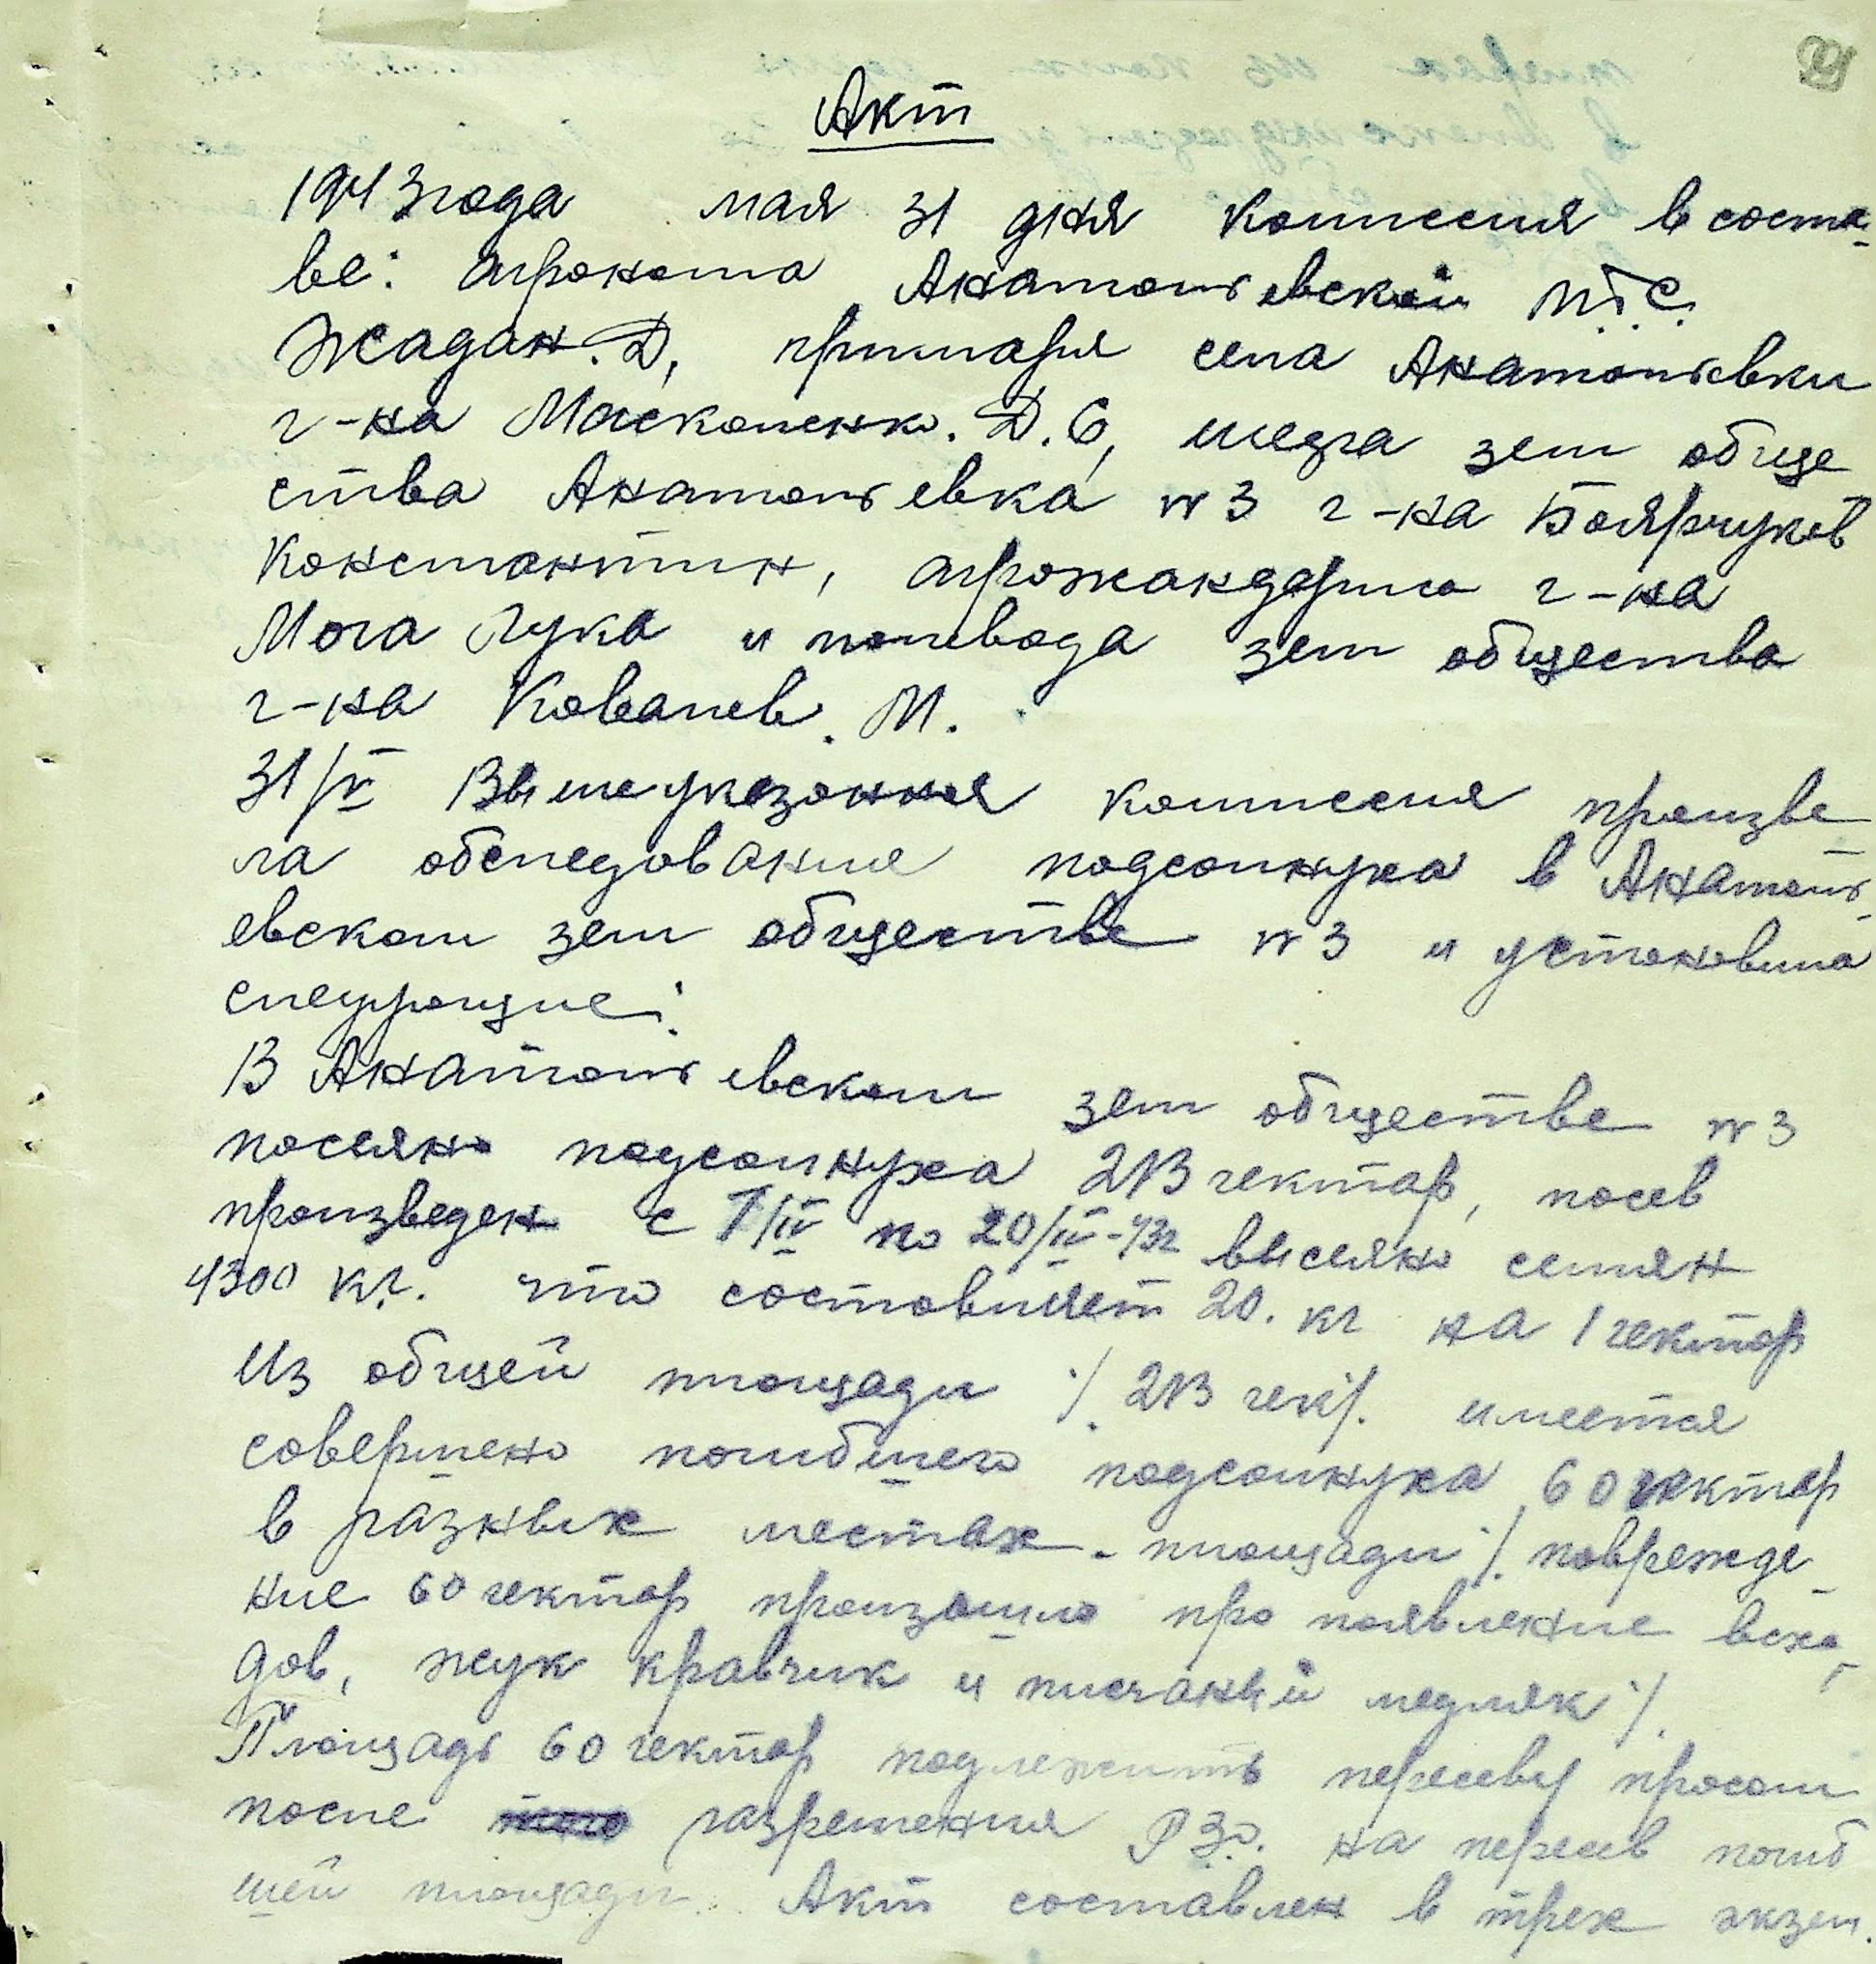 Акт
1943 года мая 31 дня комиссия в соста-
ве: агронома Анатольевской М.Т.С.
Жадан. Д, примаря села Анатольевки
г-на Москаленко. Д. С, шефа зем обще
ства Анатольевка №3 г-на Боярчуков
Константин, агрожандарма г-на
Мога Лука и полевода зем общества
г-на Ковалев. М.
31/V Вышеуказанная комиссия произве
ла обследование подсолнуха в Анатоль-
евском зем обществе №3 и установила
следующие:
В Анатольевском зем обществе №3
посеяно подсолнуха 213 гектар, посев
произведен с 7/IV по 20/IV-43г высеяно семян
4300 кг. что составляет 20. кг на 1 гектар
Из общей площади /. 213 гек/. имеется
совершено погибшего подсолнуха 60 гектар
в разных местах площади /. поврежде-
ние 60 гектар произошло про появление всхо-
дов, жук кравчик и писчаный медляк /.
Площадь 60 гектар подлежить пересеву просом
после разрешения РЗо. на пересев погиб
шей площади. Акт составлен в трех экзем.